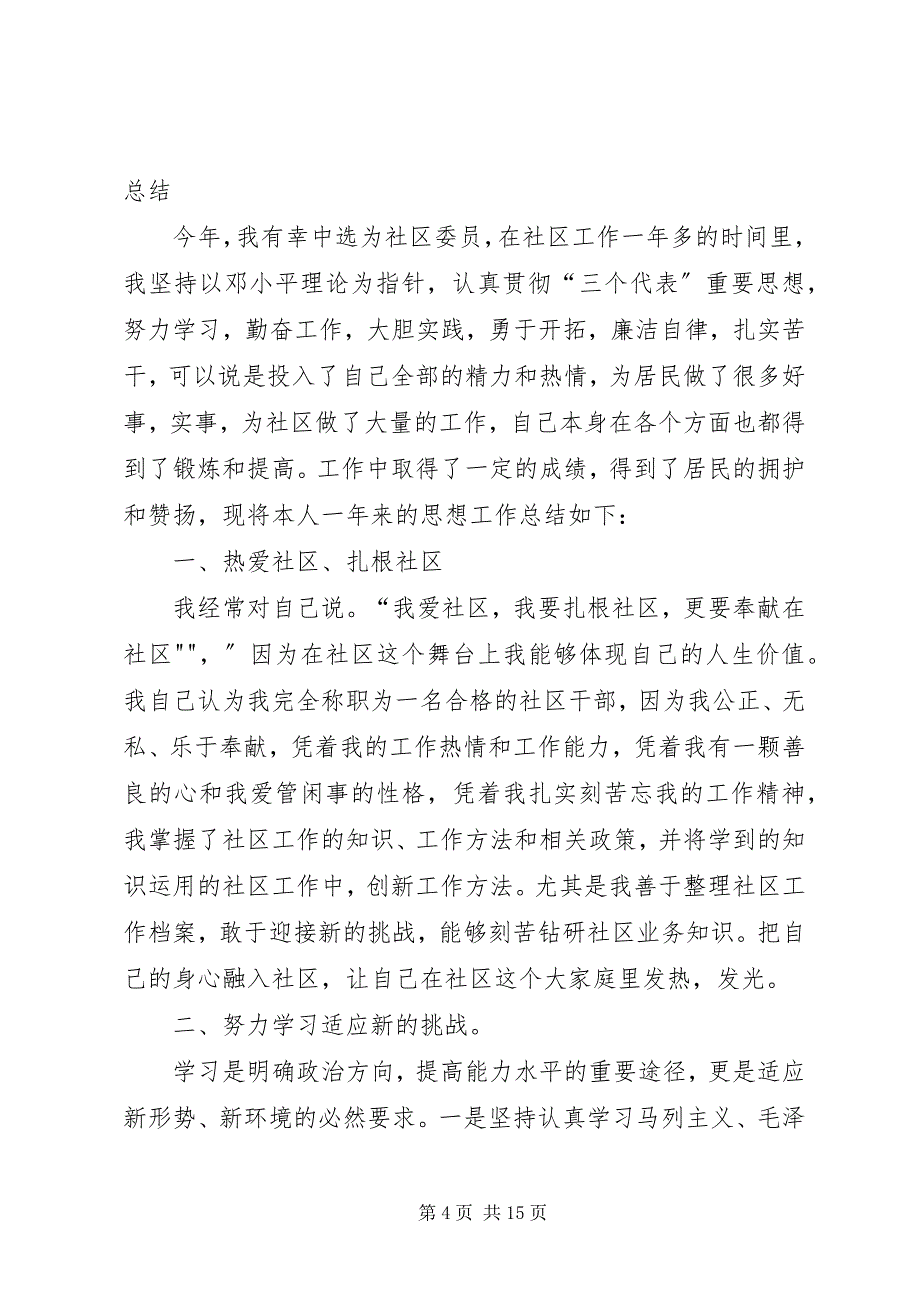 总结
今年，我有幸中选为社区委员，在社区工作一年多的时间里，
我坚持以邓小平理论为指针，认真贯彻“三个代表〞重要思想，
努力学习，勤奋工作，大胆实践，勇于开拓，廉洁自律，扎实苦
干，可以说是投入了自己全部的精力和热情，为居民做了很多好
事，实事，为社区做了大量的工作，自己本身在各个方面也都得
到了锻炼和提高。工作中取得了一定的成绩，得到了居民的拥护
和赞扬，现将本人一年来的思想工作总结如下：
一、热爱社区、扎根社区
我经常对自己说。“我爱社区，我要扎根社区，更要奉献在
社区""，〞因为在社区这个舞台上我能够体现自己的人生价值。
我自己认为我完全称职为一名合格的社区干部，因为我公正、无
私、乐于奉献，凭着我的工作热情和工作能力，凭着我有一颗善
良的心和我爱管闲事的性格，凭着我扎实刻苦忘我的工作精神，
我掌握了社区工作的知识、工作方法和相关政策，并将学到的知
识运用的社区工作中，创新工作方法。尤其是我善于整理社区工
作档案，敢于迎接新的挑战，能够刻苦钻研社区业务知识。把自
己的身心融入社区，让自己在社区这个大家庭里发热，发光。
二、努力学习适应新的挑战。
学习是明确政治方向，提高能力水平的重要途径，更是适应
新形势、新环境的必然要求。一是坚持认真学习马列主义、毛泽
第 4 页 共 15 页